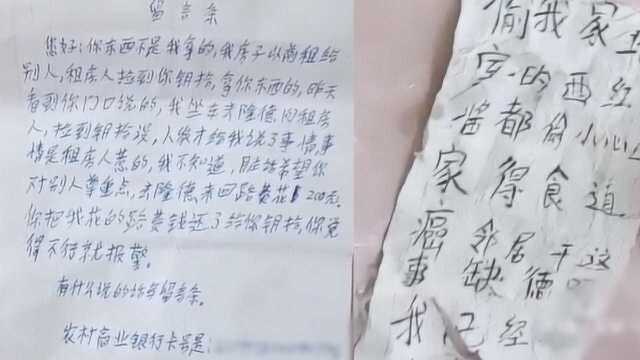 留言条
您好:你东西不是我拿的,我房子以前租给
别人,租房人拉到你钥拾,拿你东西的,昨天
看到你门口说的,我坐车去隆德问租房
人,拉到钥拾没,人家才给我说了事情,事
情是租房人惹的,我不知道,
对别人掌重点,去隆德来回路费花200元。
你把我花的路费钱还了给你钥拾,你觉
得不行就报警。
有什么说的
留言条。
农村商业银行卡号是:
偷我家
的西红
酱都偷小心
家得食道
癌邻居干这
事缺德
我已经